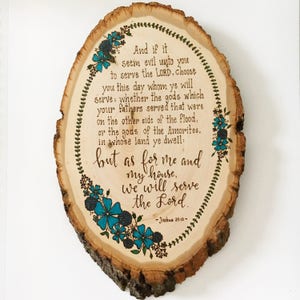 And if it
seem evil unto you
to serve the LORD, choose
you this day whom ye will
serve; whether the gods which
your fathers served that were
on the other side of the flood,
or the gods of the Amorites,
in whose land ye dwell:
but as for me and
my house,
we will serve
the Lord.
- Joshua 24:15 -